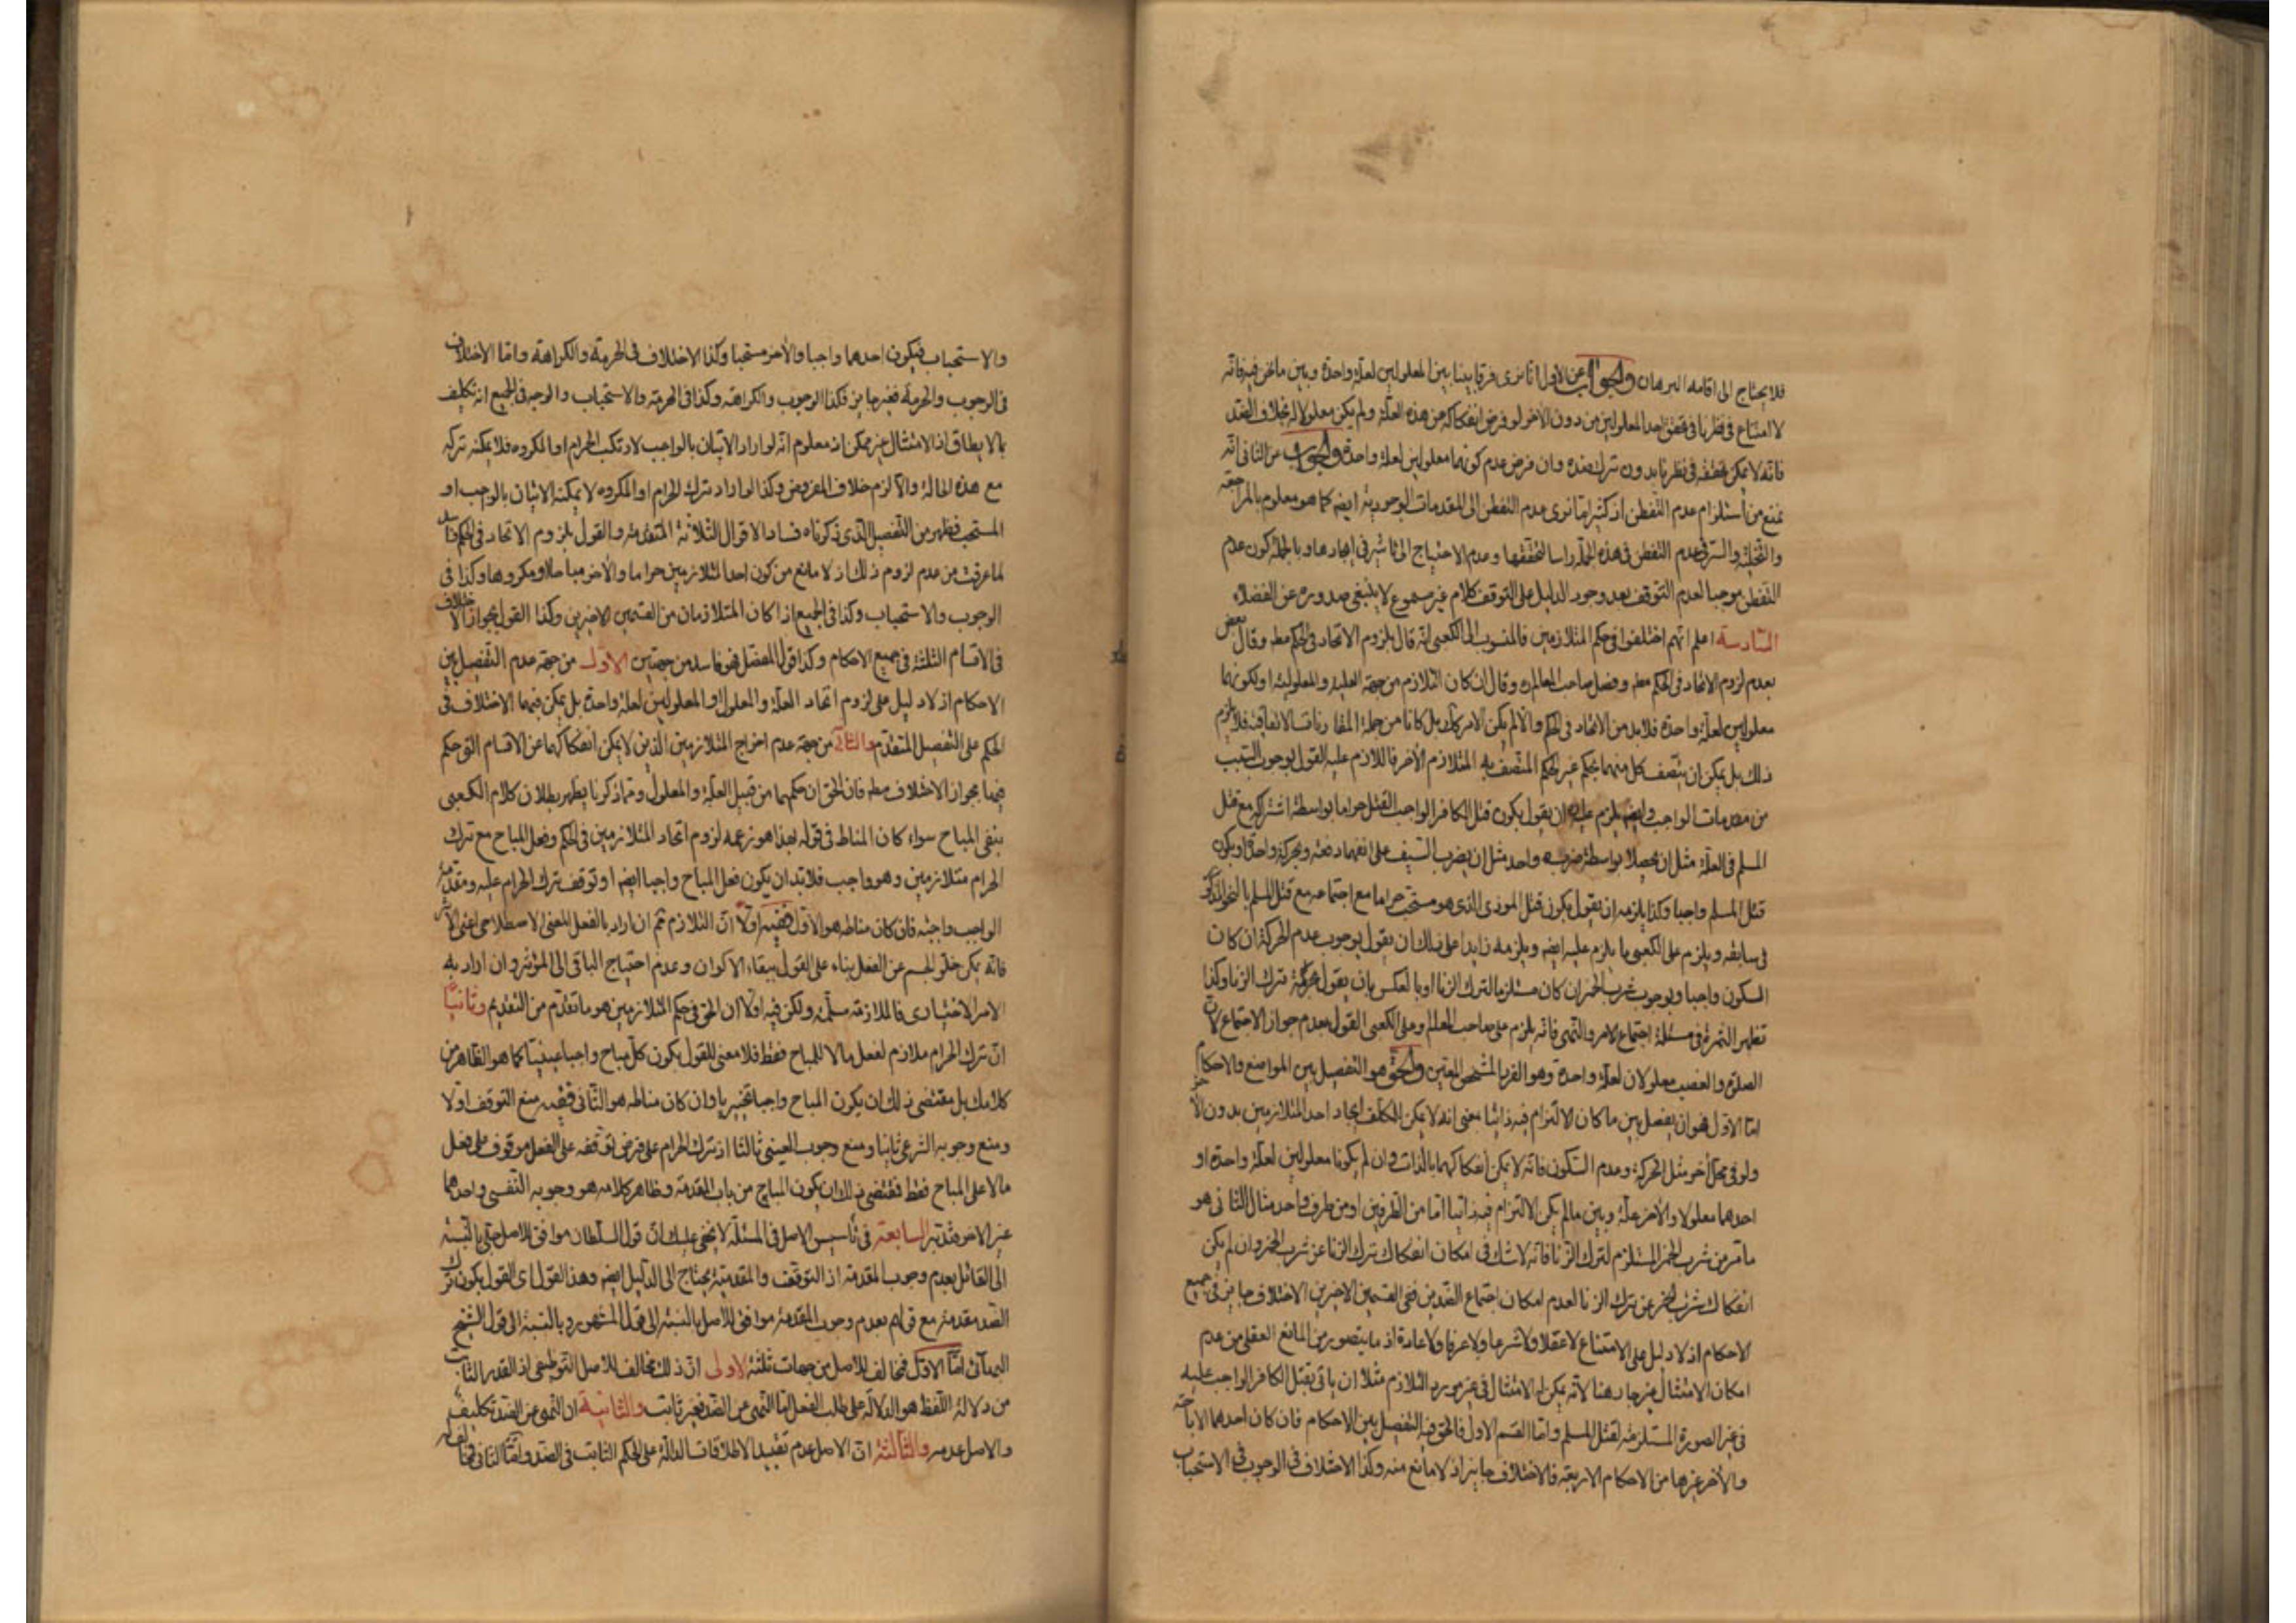 فلا يحتاج الى اقامه البرهان والجواب عن الاول انا نرى فرقا بينا بين المعلولين لعلة واحدة وبين ما نحن فيه فانه
لا امتناع فى نظرنا فى تحقق احد المعلولين من دون الاخر لو فرض انفكاكه من هذه العلة ولم يكن معلولا له بخلاف الضد
فانه لا يمكن تحققه فى نظرنا بدون ترك ضده وان فرض عدم كونهما معلولين لعلة واحدة والجواب عن الثانى انه
نمنع من استلزام عدم التفطن اذ كثيرا ما نرى عدم التفطن الى المقدمات الوجودية ايضا كما هو معلوم بالمراجعة
والتخلية والسر فى عدم التفطن فى هذه الجملة راسا لتحققها وعدم الاحتياج الى تاثير فى ايجادها وبالجملة كون عدم
التفطن موجبا لعدم التوقف بعد وجود الدليل على التوقف كلام غير مسموع لا ينبغى صدوره عن الفضلاء
السادسة اعلم انهم اختلفوا فى حكم المتلازمين فالمنسوب الى الكعبى انه قال بلزوم الاتحاد فى الحكم مط وقال بعض
بعدم لزوم الاتحاد فى الحكم مط وفصل صاحب المعالم ره وقال ان كان التلازم من جهة العلية والمعلولية او لكونهما
معلولين لعلة واحدة فلا بد من الاتحاد فى الحكم والا لم يكن الامر كذلك بل كانا من جملة المقارنات الاتفاقية فلا يلزم
ذلك بل يمكن ان يتصف كل منهما بحكم غير الحكم المتصف به المتلازم الاخر فاللازم عليه القول بوجوب السبب
من مقدمات الواجب وايضا يلزم عليه ان يقول بكون قتل الكافر الواجب القتل حراما بواسطة اشتراكه مع قتل
المسلم فى العلة مثل ان يحصلا بواسطة ضربه واحد مثل ان يضرب السيف على انفهما دفعة وبحركة واحدة او يكون
قتل المسلم واجبا وكذا يلزمه ان يقول بكون قتل الموذى الذى هو مستحب حراما مع اجتماعه مع قتل المسلم بالنحو المذكور
فى سابقه ويلزم على الكعبى ما يلزم عليه ايضا ويلزمه زايدا على ذلك ان يقول بوجوب عدم الحركة ان كان
السكون واجبا وبوجوب شرب الخمر ان كان مستلزما لترك الزنا او بالعكس بان يقول بحرمة ترك الزنا وكذا
تظهر الثمرة فى مسئلة اجتماع الامر والنهى فانه يلزم على صاحب المعالم وعلى الكعبى القول بعدم جواز الاجتماع لان
الصلوة والغصب معلولان لعلة واحدة وهو الفرد المشخص المعين والحق هو التفصيل بين المواضع والاحكام
اما الاول فهو ان يفصل بين ما كان الالتزام فيه ذاتيا بمعنى انه لا يمكن للمكلف ايجاد احد المتلازمين بدون الاخر
ولو فى محل آخر مثل الحركة وعدم السكون فانه لا يمكن انفكاكهما بالذات وان لم يكونا معلولين لعلة واحدة او
احدهما معلولا والاخر علة وبين ما لم يكن الالتزام فيه ذاتيا اما من الطرفين او من طرف واحد مثال الثانى هو
ما مر من شرب الخمر المستلزم لترك الزنا فانه لا شك فى امكان انفكاك ترك الزنا عن شرب الخمر وان لم يكن
انفكاك شرب الخمر عن ترك الزنا لعدم امكان اجتماع الضدين ففى القسمين الاخيرين الاختلاف جايز فى جميع
الاحكام اذ لا دليل على الامتناع لا عقلا ولا شرعا ولا عرفا ولا عادة اذ ما يتصور من المانع العقلى من عدم
امكان الامتثال غير جار هنا لانه يمكن له الامتثال فى غير مورد التلازم مثلا ان ياتى بقتل الكافر الواجب عليه
فى غير الصورة المستلزمة لقتل المسلم واما القسم الاول فالحق فيه التفصيل بين الاحكام فان كان احدهما الاباحة
والاخر غيرها من الاحكام الاربعة فالاختلاف جايز اذ لا مانع منه وكذا الاختلاف فى الوجوب فى الاستحباب
والاستحباب فيكون احدهما واجبا والاخر مستحبا وكذا الاختلاف فى الحرمة والكراهة واما الاختلاف
فى الوجوب والحرمة فغير جايز فكذا الوجوب والكراهة وكذا فى الحرمة والاستحباب والوجه فى الجميع انه تكليف
بالا يطاق اذ الامتثال غير ممكن اذ معلوم انه لو اراد الاتيان بالواجب لارتكب الحرام او المكروه فلا يمكنه تركه
مع هذه الحالة والا لزم خلاف المفروض وكذا لو اراد ترك الحرام او المكروه لا يمكنه الاتيان بالواجب او
المستحب فظهر من التفصيل الذى ذكرناه فساد الاقوال الثلاثة المتقدمة والقول بلزوم الاتحاد فى الحكم فاسد
لما عرفت من عدم لزوم ذلك اذ لا مانع من كون احد المتلازمين حراما والاخر مباحا او مكروها وكذا فى
الوجوب والاستحباب وكذا فى الجميع اذا كان المتلازمان من القسمين الاخيرين وكذا القول بجواز الاختلاف
فى الاقسام الثلثة فى جميع الاحكام وكذا قول المفصل فهو فاسد من جهتين الاول من جهة عدم التفصيل بين
الاحكام اذ لا دليل على لزوم اتحاد العلة والمعلول او المعلولين لعلة واحدة بل يمكن فيهما الاختلاف فى
الحكم على التفصيل المتقدم والثانى من جهة عدم اخراج المتلازمين الذين لا يمكن انفكاكهما عن الاقسام التى حكم
فيها بجواز الاختلاف مط فان الحق ان حكمهما من قبيل العلة والمعلول ومما ذكرنا يظهر بطلان كلام الكعبى
بنفى المباح سواء كان المناط فى قوله بهذا هو زعمه لزوم اتحاد المتلازمين فى الحكم وفعل المباح مع ترك
الحرام متلازمين وهو واجب فلا بد ان يكون فعل المباح واجبا ايضا او توقف ترك الحرام عليه ومقدمة
الواجب واجبة فان كان مناطه هو الاول ففيه اولا ان التلازم ثم ان اراد بالفعل المعنى الاصطلاحى اعنى الاثر
فانه يمكن خلو الجسم عن الفعل بناء على القول ببقاء الاكوان وعدم احتياج الباقى الى المؤثر وان اراد به
الامر الاختيارى فالملازمة مسلمة ولكن فيه اولا ان الحق فى حكم المتلازمين هو ما تقدم من التقديم وثانيا
ان ترك الحرام ملازم لفعل ما لا للمباح فقط فلا معنى للقول بكون كل مباح واجبا عينيا كما هو الظاهر من
كلامك بل مقتضى ذلك ان يكون المباح واجبا تخييريا وان كان مناطه هو الثانى ففيه منع التوقف اولا
ومنع وجوبه الشرعى ثانيا ومنع وجوب العينى ثالثا اذ ترك الحرام على فرض توقفه على الفعل موقوف على فعل
ما لا على المباح فقط فمقتضى ذلك ان يكون المباح من باب المقدمة وظاهر كلامه هو وجوبه النفسى واحدهما
غير الاخر فتدبر السابعة فى تأسيس الاصل فى المسئلة لا يخفى عليك ان قول السلطان موافق للاصل حتى بالنسبة
الى القائل بعدم وجوب المقدمة اذ التوقف والمقدمية يحتاج الى الدليل ايضا وهذا القول اى القول بكون ترك
الضد مقدمة مع قوله بعدم وجوب المقدمة موافق للاصل بالنسبة الى قول المشهور وبالنسبة الى قول الشيخ
البهائى اما الاول فمخالف للاصل من جهات ثلثة الاولى ان ذلك مخالف للاصل التوظيفى اذ القدر الثابت
من دلالة اللفظ هو الدلالة على طلب الفعل اما النهى عن الضد فغير ثابت والثانية ان النهى عن الضد تكليف
والاصل عدمه والثالثة ان الاصل عدم تقييد الاطلاقات الدالة على الحكم الثابت فى الضد واما الثانى فمخالف